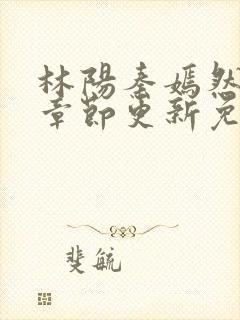 林陽秦嫣然
章節更新免
斐毓